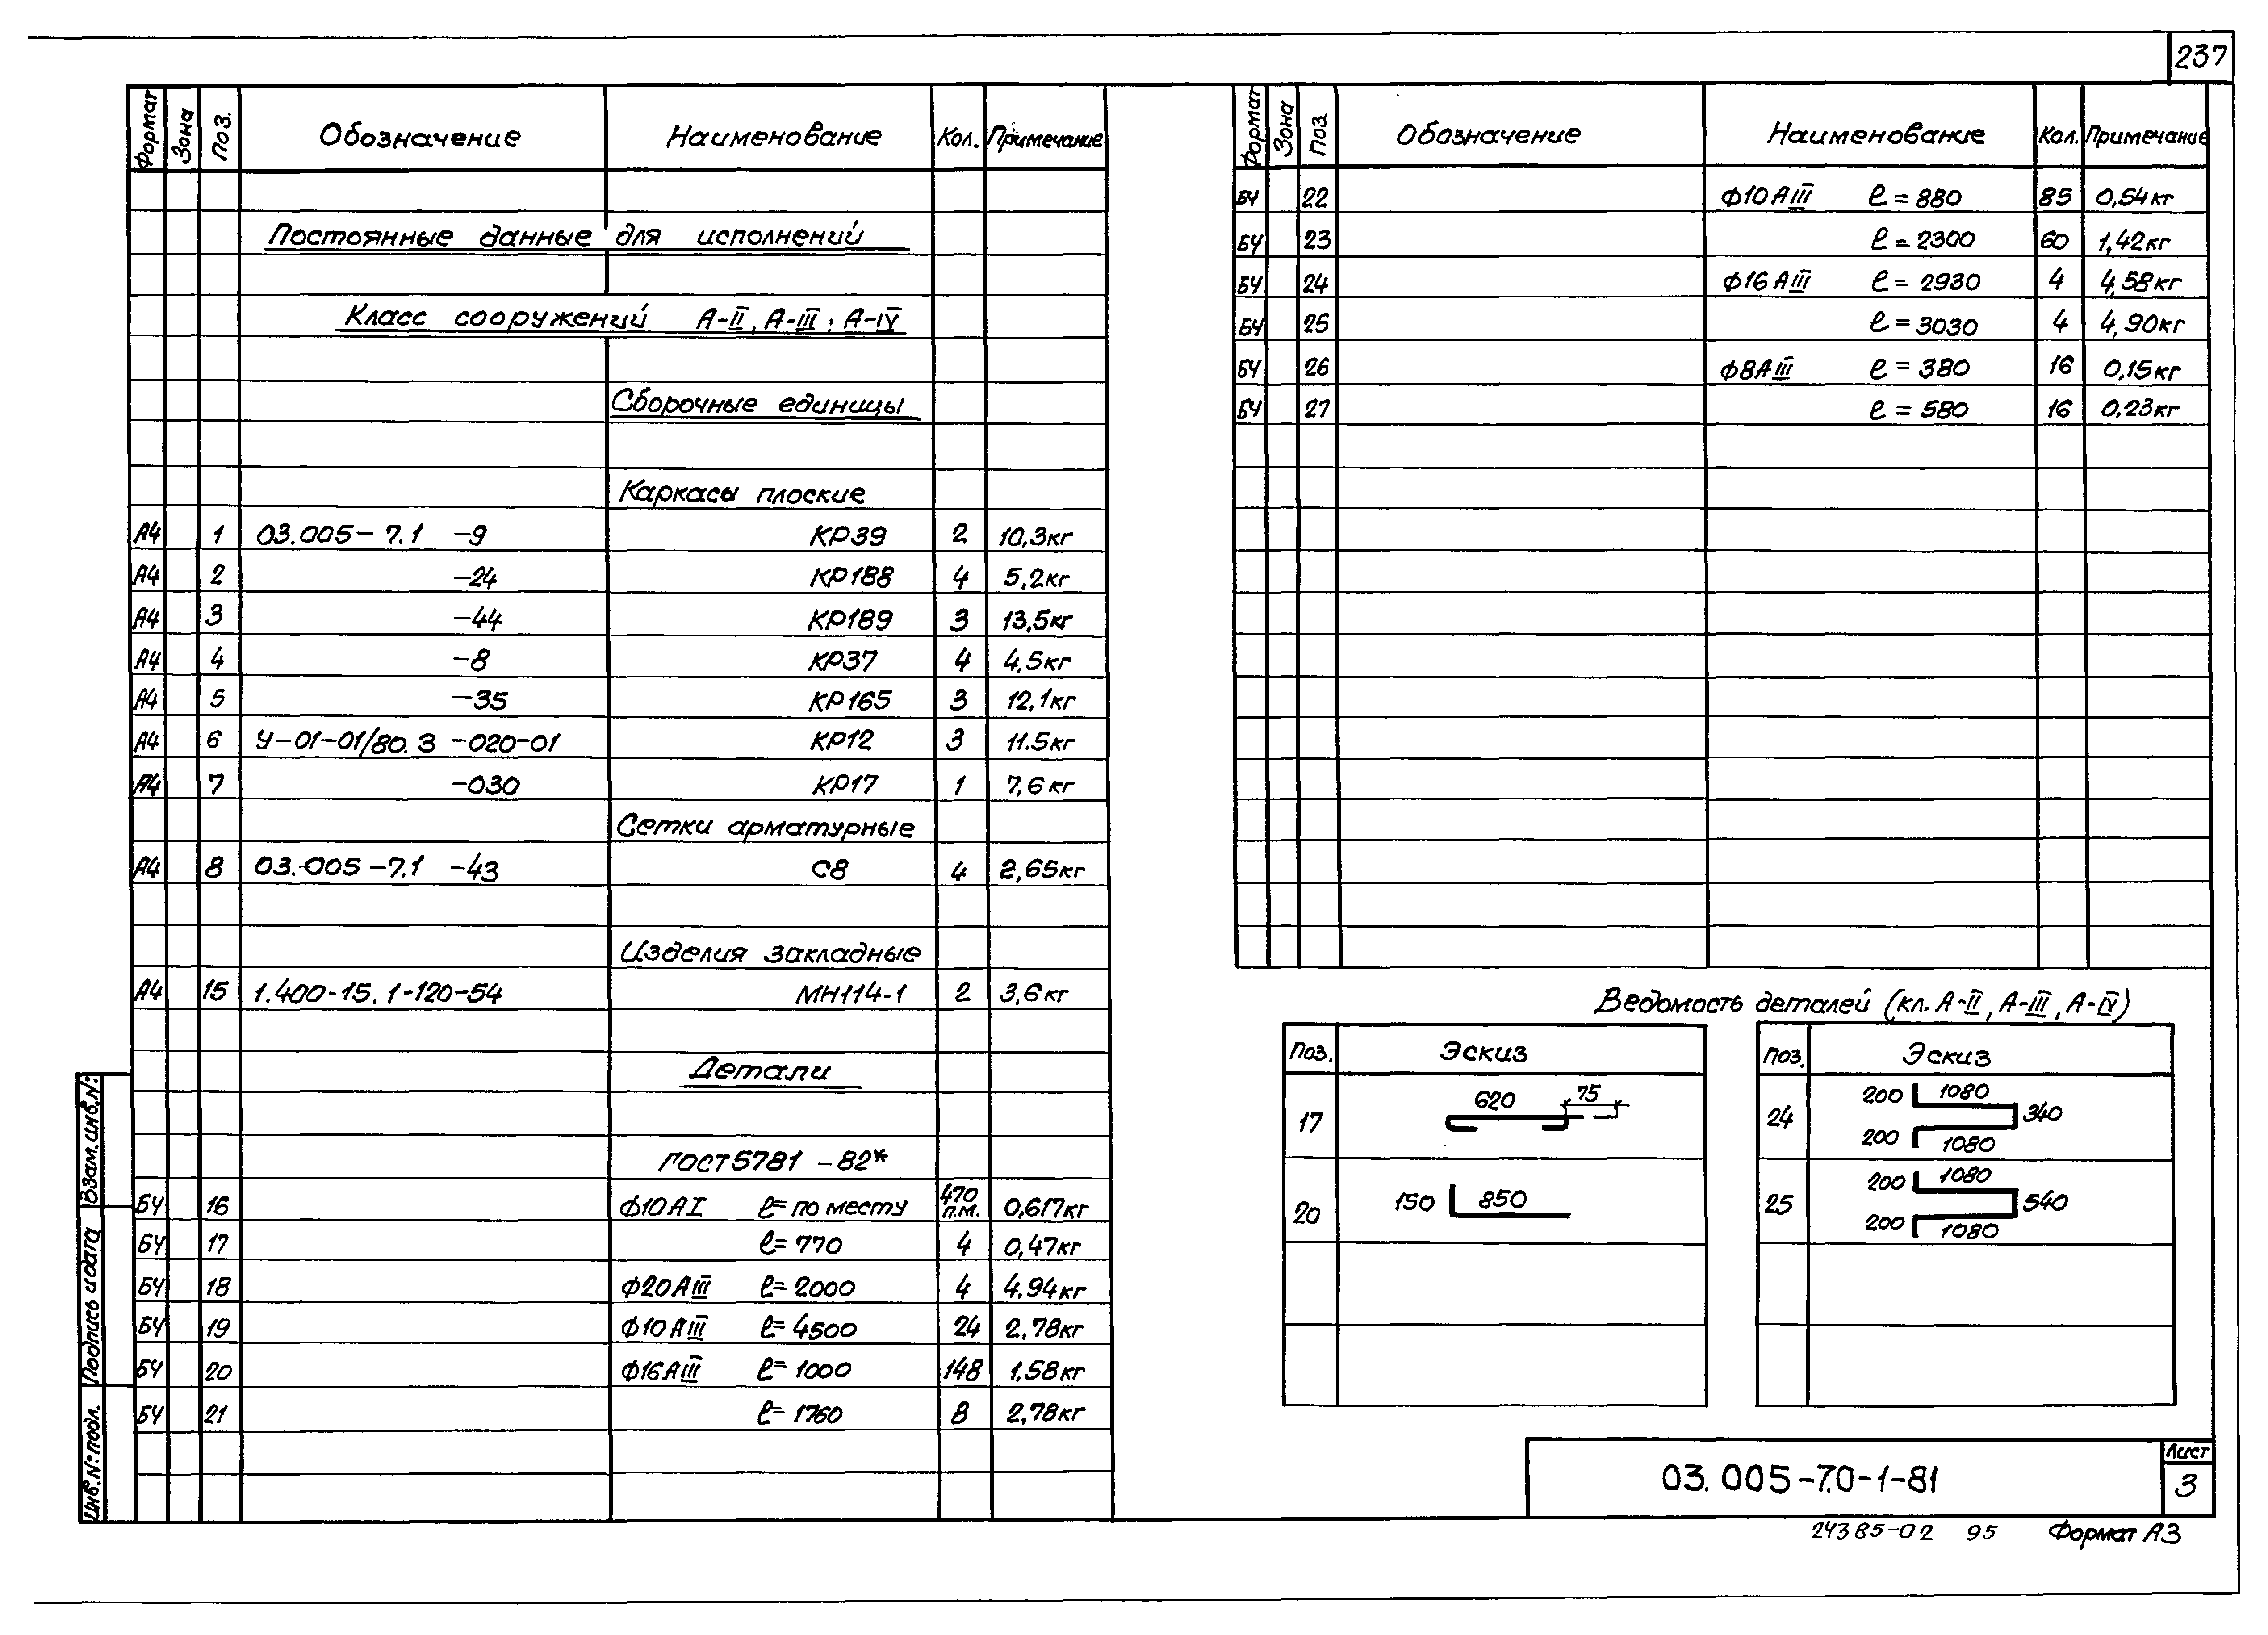 237
Формат Зона Поз. Обозначение Наименование Кол. Примечание
Постоянные данные для исполнений
Класс сооружений А-II, А-III, А-IV
Сборочные единицы
Каркасы плоские
А4 1 03.005-7.1 -9 КР39 2 10,3кг
А4 2 -24 КР188 4 5,2кг
А4 3 -44 КР189 3 13,5кг
А4 4 -8 КР37 4 4,5кг
А4 5 -35 КР165 3 12,1кг
А4 6 У-01-01/80.3 -020-01 КР12 3 11.5кг
А4 7 -030 КР17 1 7,6кг
Сетки арматурные
А4 8 03.005-7.1 -43 С8 4 2,65кг
Изделия закладные
А4 15 1.400-15.1-120-54 МН114-1 2 3,6кг
Детали
ГОСТ 5781-82*
БЧ 16 Ф10АI ℓ= по месту 470 п.м. 0,617кг
БЧ 17 ℓ= 770 4 0,47кг
БЧ 18 Ф20АIII ℓ= 2000 4 4.94кг
БЧ 19 Ф10АIII ℓ= 4500 24 2,78кг
БЧ 20 Ф16АIII ℓ= 1000 148 1.58кг
БЧ 21 ℓ= 1760 8 2,78кг
Формат Зона Поз Обозначение Наименование Кол. Примечание
БЧ 22 Ф10АIII ℓ = 880 85 0,54кг
БЧ 23 ℓ = 2300 60 1,42кг
БЧ 24 Ф16АIII ℓ = 2930 4 4,58кг
БЧ 25 ℓ = 3030 4 4,90кг
БЧ 26 Ф8АIII ℓ = 380 16 0,15кг
БЧ 27 ℓ = 580 16 0,23кг
Ведомость деталей (кл. А-II, А-III, А-IV)
Поз. Эскиз
17 620 75
20 150 850
Поз. Эскиз
24 200 1080 340 200 1080
25 200 1080 540 200 1080
Взам.инв.N:
Подпись и дата
Инв.N:подл.
03.005-7.0-1-81
Лист
3
24385-02 95 Формат А3